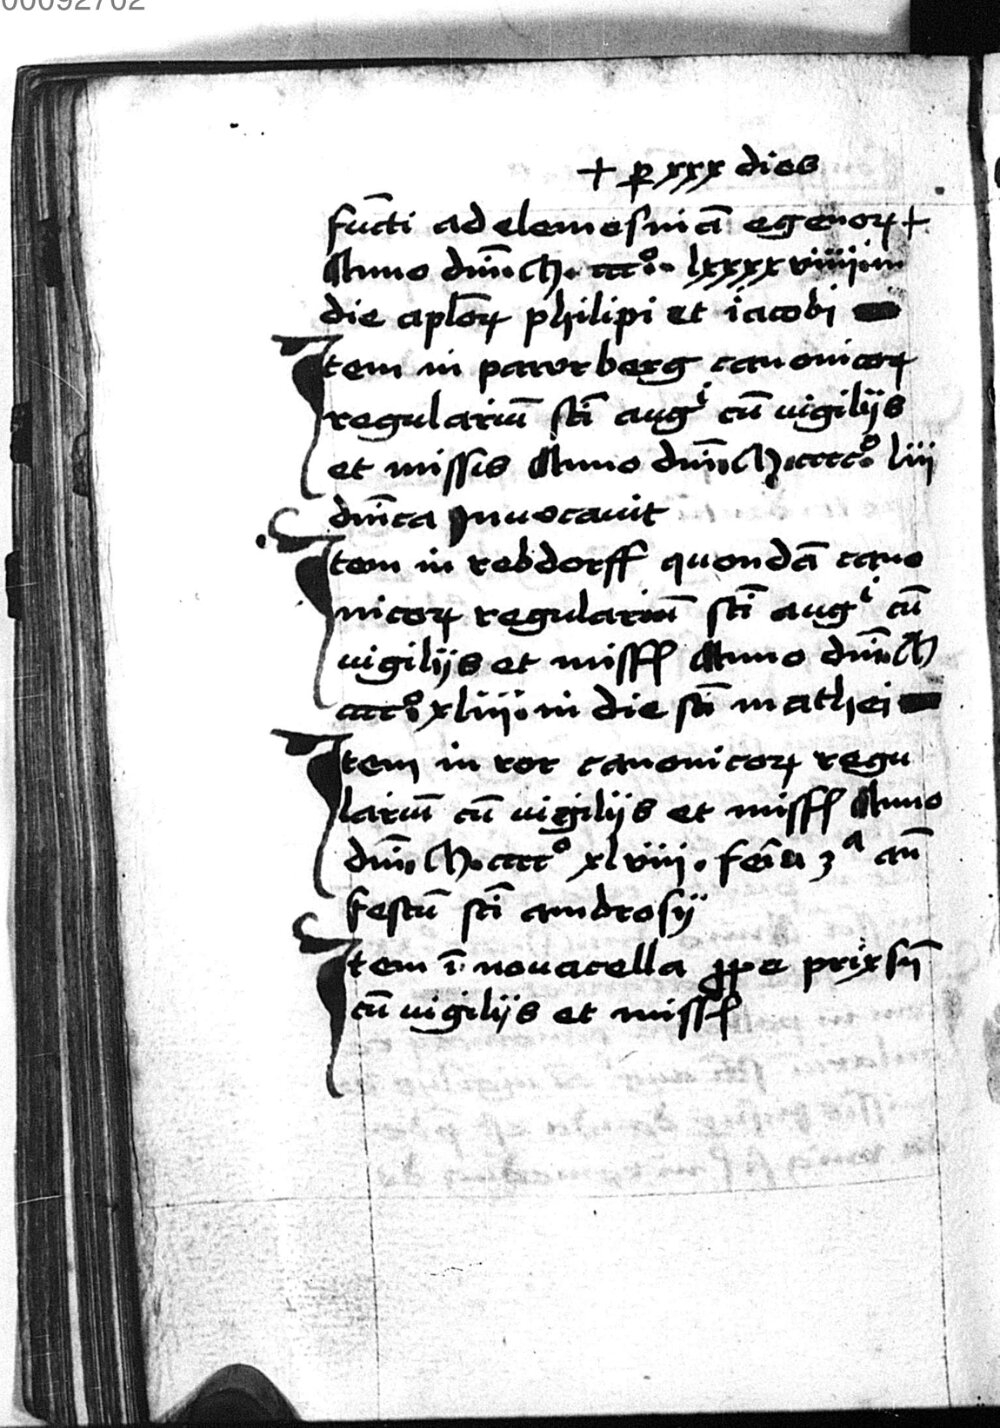 00092702
+ p xxx dies
fūcti ad elemesnicā egenoꝝ +
Anno dn̄i. M. cccº. lxxxxviiiij. in
die aplōꝝ philipi et iacobi
Item in parurberg canonicoꝝ
regulariū sc̄i augⁱ cū uigilijs
et missis Anno dn̄i. M. ccccº. liij
dn̄ica Inuocauit
Item in rebdorff quondā cano
nicoꝝ regulariū sc̄i augⁱ cū
uigilijs et miss Anno dn̄i. M
ccccº. xliiij. in die sc̄i mathei
Item in ror canonicoꝝ regu
lariū cū uigilijs et miss Anno
dn̄i. M. ccccº xlviij. feīa 3ª an̄
festū sc̄i ambrosij
Item ī nouacella ꝓpe prixsn̄
cū uigilijs et miss